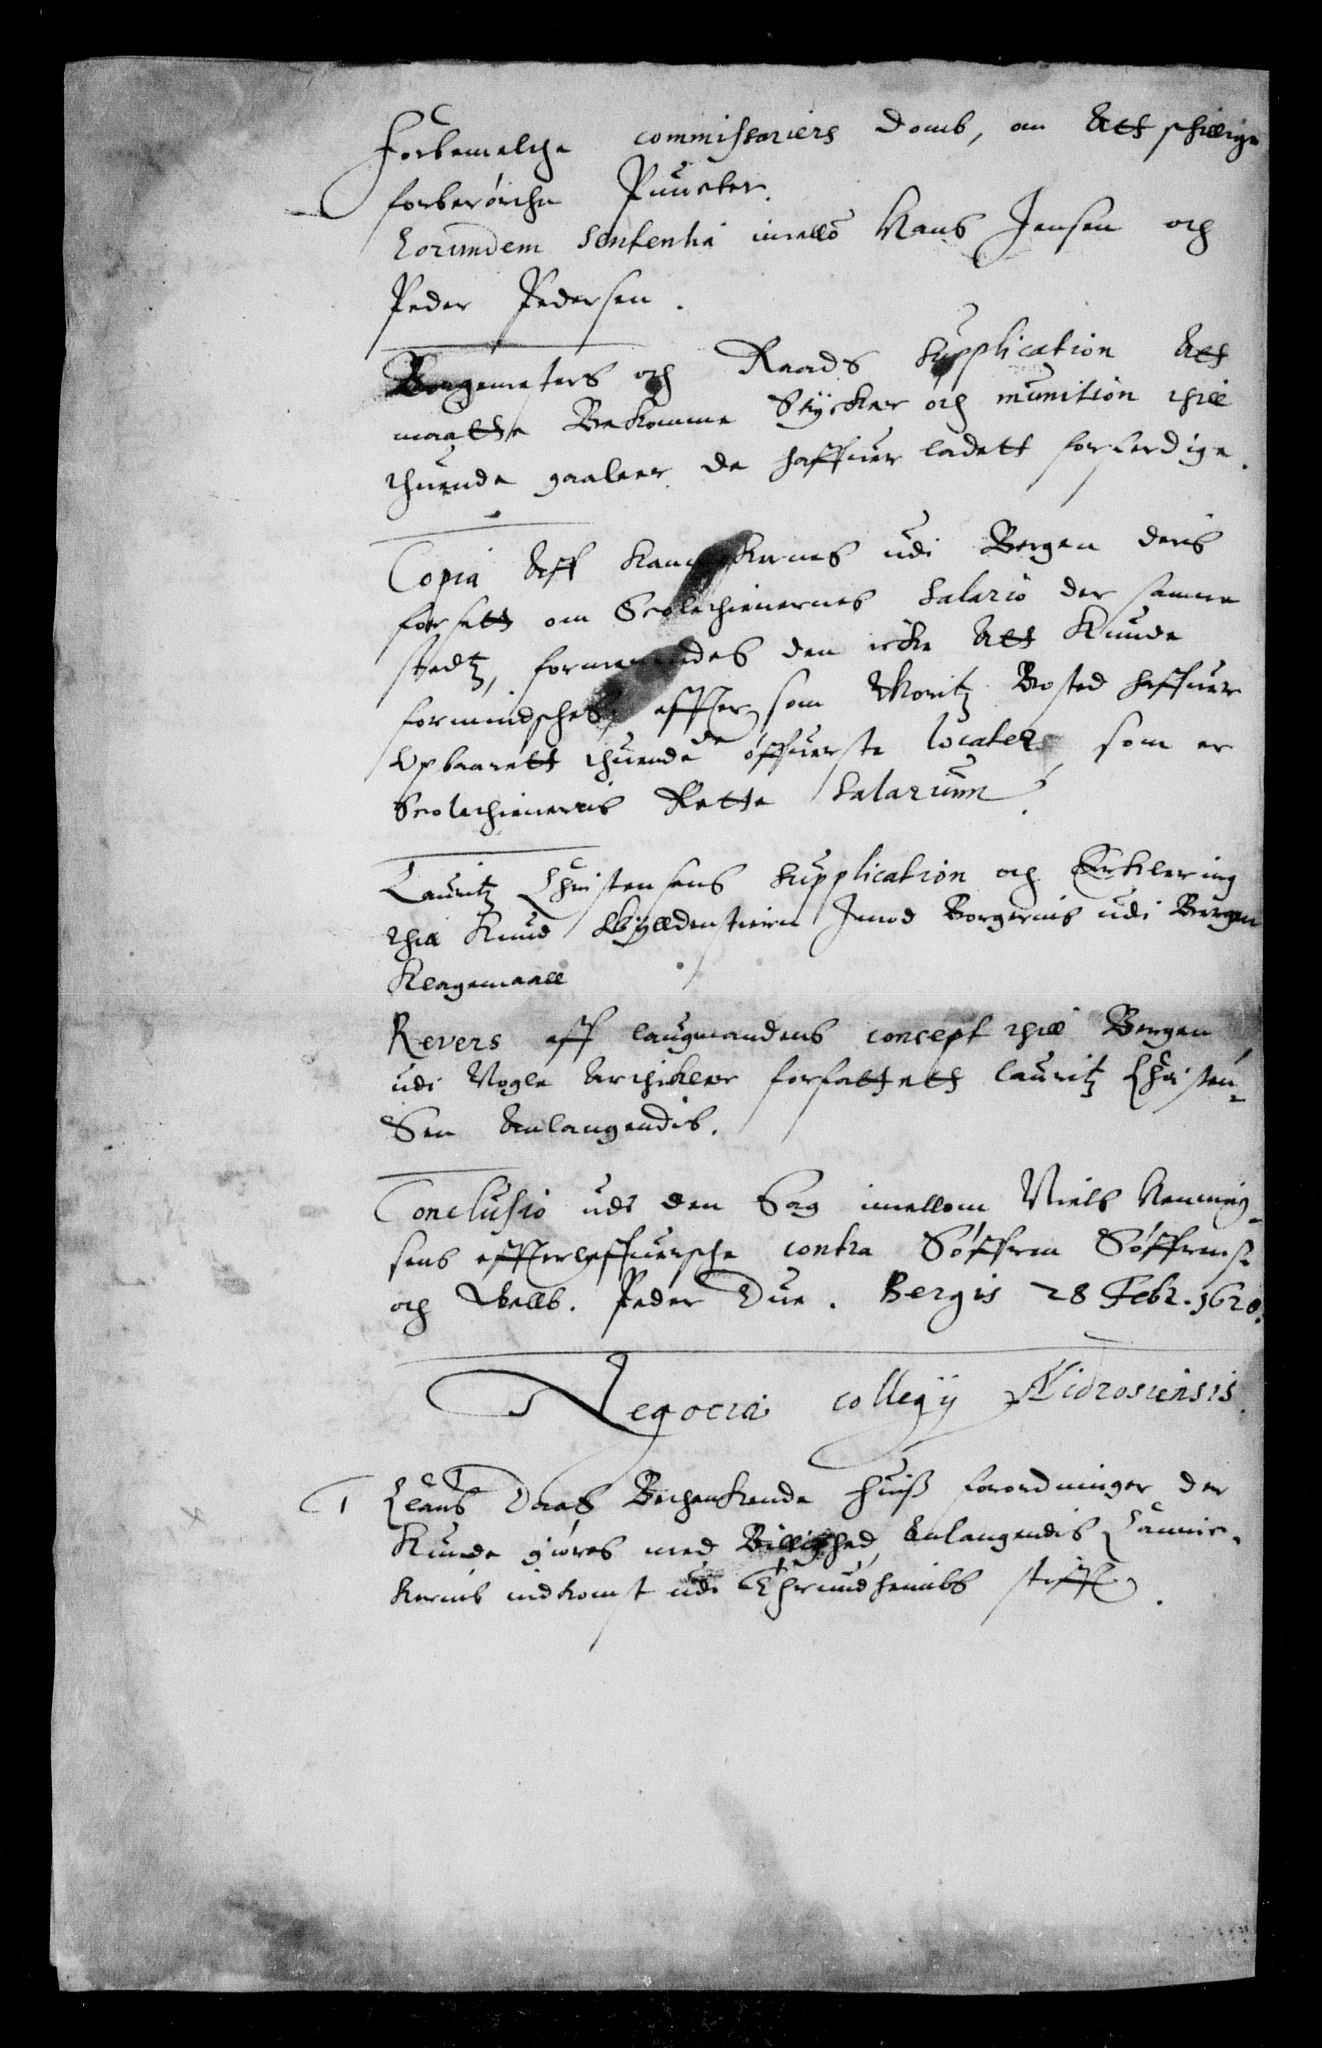 Forbemelte commissariers Domb, om Att schillige
forberørthe Puncter.
Eorundem Sententia imello Hans Jensen och
Peder Pedersen.
Borgemesters och Raads Supplication Att
maatte Bekomme Stycker och munition thill
thuende gaaleer de haffuer ladett forferdige.
Copia Aff udi Bergen deris
forsett om Scoletienernes Salario der samme
stedtz, den icke Att Kunde
formindsches, effter som Moritz Bosted haffuer
Opbaarett thuende de øffuerste locater, som er
Scoletieneris Rette Salarium.
Lauritz Christensens Supplication och Erklering
thill Knud Gylldenstiern Imod Borgernis udi Bergen
Klagemaall
Revers aff laugmandens concept thill Bergen
udi Nogle Artickler forfattett lauritz Christen-
Sen Anlangendis.
Conclusio udi den Sag imellom Niels Henning-
sens effterleffuersche contra Søffren Søffrens.
och Welb. Peder Due. Bergis 28 Febr. 1620.
Negocia collegij Nidrosiensis.
1 Claus Daas Bethenkende huiss forordninger der
Kunde giøres med Billighed Anlangendis Cannic-
kernis indkomst udi Thrundhembs stifft.